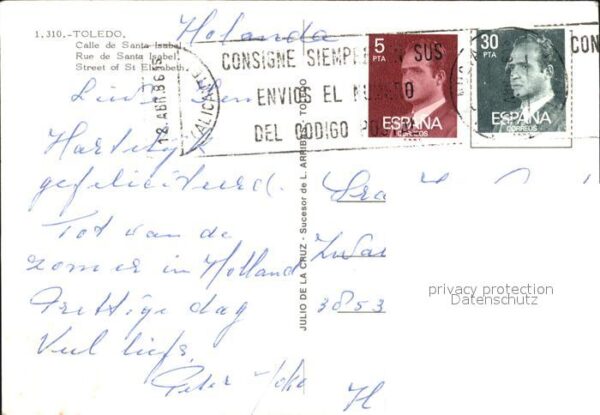 1.310.-TOLEDO.
Calle de Santa Isabel.
Rue de Sainte Isabel.
Street of St Elizabeth.
Holanda
CONSIGNE SIEMPRE SUS
ENVIOS EL NUMERO
DEL CODIGO POSTAL
CON
18 ABR. 86
ALICANTE
5
PTA
ESPAÑA
CORREOS
30
PTA
ESPAÑA
CORREOS
Hartelijk
gefeliciteerd.
Tot van de
zomer in Holland
Prettige dag
Veul liefs,
Peter
JULIO DE LA CRUZ - Sucesor de L. ARRIBAS. TOLEDO
3853
H
privacy protection
Datenschutz